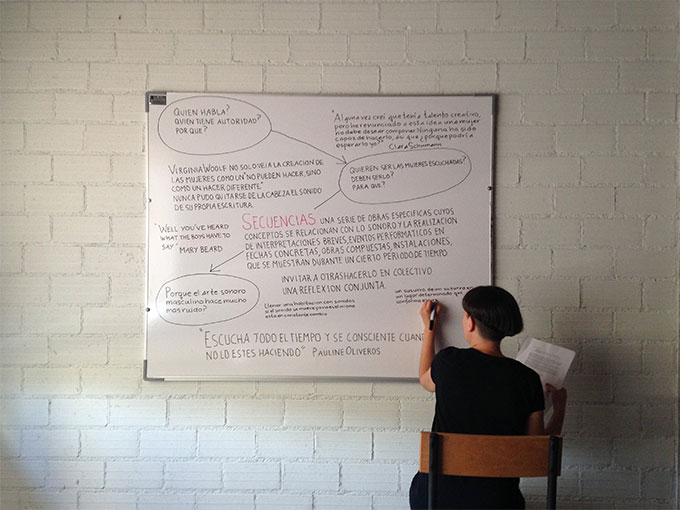 QUIEN HABLA?
QUIEN TIENE AUTORIDAD?
POR QUE?
"Alguna vez creí que tenía talento creativo,
pero he renunciado a esta idea una mujer
no debe desear componer. Ninguna ha sido
capaz de hacerlo, así que ¿porque podría
esperarlo yo?"
Clara Schumann
VIRGINIA WOOLF NO SOLO VEIA LA CREACION DE
LAS MUJERES COMO UN "NO PUEDEN HACER, SINO
COMO UN HACER DIFERENTE"
NUNCA PUDO QUITARSE DE LA CABEZA EL SONIDO
DE SU PROPIA ESCRITURA.
QUIEREN SER LAS MUJERES ESCUCHADAS?
DEBEN SERLO?
PARA QUE?
"WELL YOU'VE HEARD
WHAT THE BOYS HAVE TO
SAY" MARY BEARD
SECUENCIAS UNA SERIE DE OBRAS ESPECIFICAS CUYOS
CONCEPTOS SE RELACIONAN CON LO SONORO Y LA REALIZACION
DE INTERPRETACIONES BREVES, EVENTOS PERFORMATICOS EN
FECHAS CONCRETAS, OBRAS COMPUESTAS, INSTALACIONES,
QUE SE MUESTRAN DURANTE UN CIERTO PERIODO DE TIEMPO
INVITAR A OTRAS HACERLO EN COLECTIVO
UNA REFLEXION CONJUNTA.
Porque el arte sonoro
masculino hace mucho
mas ruido?
Llenar una habitacion con sonidos
si el sonido se mueve para evolucionar
esta en constante cambio
un susurro de mi susurro en
un lugar determinado que
"ESCUCHA TODO EL TIEMPO Y SE CONSCIENTE CUAN
NO LO ESTES HACIENDO" PAULINE OLIVEROS